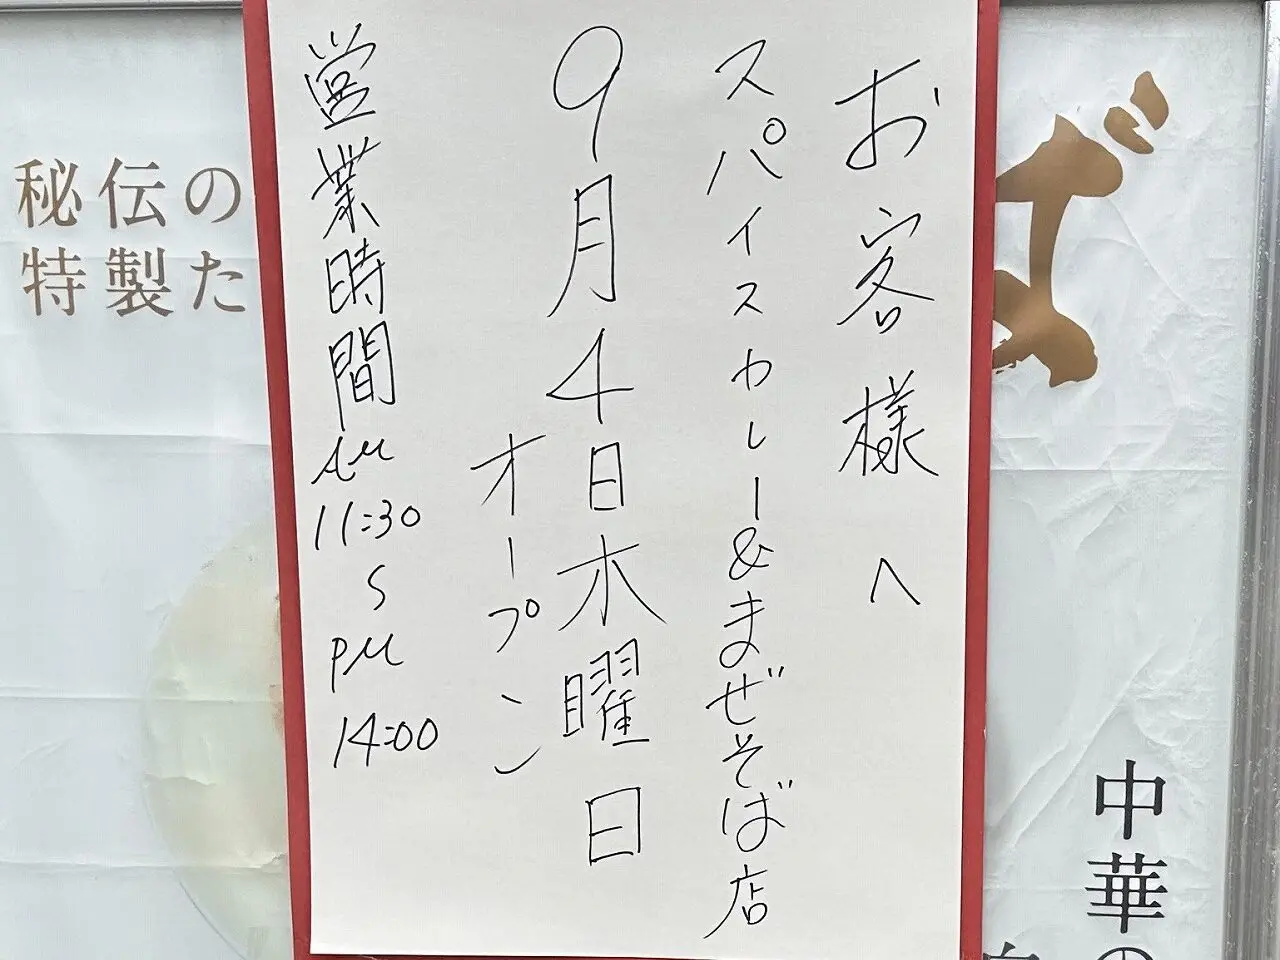 お客様へ
スパイスカレー&まぜそば店
9月4日木曜日
オープン
営業時間
AM
11:30
〜
PM
14:00
秘伝の
特製た
ば
中華の